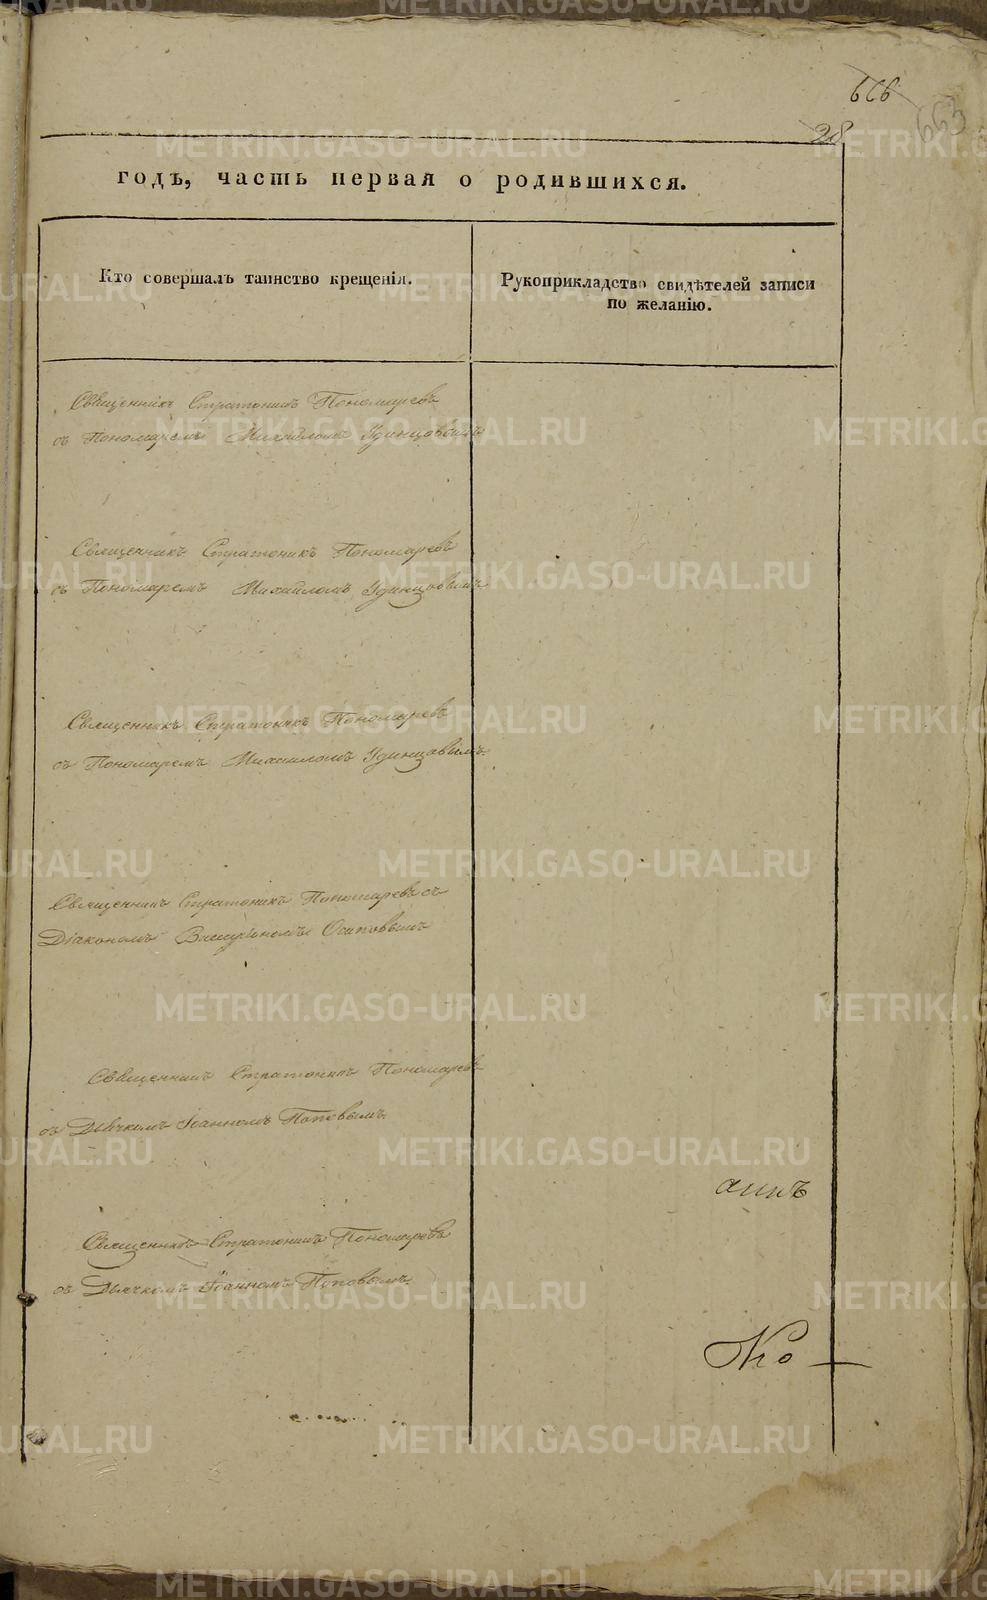 666
663
28
годъ, часть первая о родившихся.
Кто совершалъ таинство крещенія.
Рукоприкладство свидѣтелей записи
по желанію.
Священникъ Стратоникъ Пономаревъ
съ Пономаремъ Михаиломъ Удинцовымъ
Священникъ Стратоникъ Пономаревъ
съ Пономаремъ Михаиломъ Удинцовымъ
Священникъ Стратоникъ Пономаревъ
съ Пономаремъ Михаиломъ Удинцовымъ
Священникъ Стратоникъ Пономаревъ съ
Діакономъ Осиповымъ
Священникъ Стратоникъ Пономаревъ
съ Дьячкомъ Іоанномъ Поповымъ
Священникъ Стратоникъ Пономаревъ
съ Дьячкомъ Іоанномъ Поповымъ
METRIKI.GASO-URAL.RU